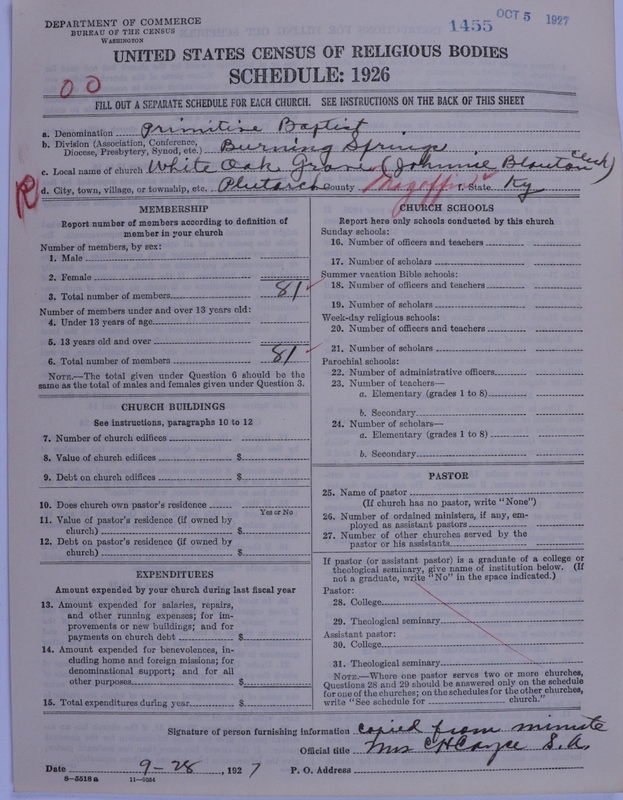 DEPARTMENT OF COMMERCE
BUREAU OF THE CENSUS
WASHINGTON
1455 OCT 5 1927
UNITED STATES CENSUS OF RELIGIOUS BODIES
SCHEDULE: 1926
00
FILL OUT A SEPARATE SCHEDULE FOR EACH CHURCH. SEE INSTRUCTIONS ON THE BACK OF THIS SHEET
a. Denomination Primitive Baptist
b. Division (Association, Conference, Diocese, Presbytery, Synod, etc.) Burning Springs
c. Local name of church White Oak Grove (Johnnie Blanton Clerk)
R d. City, town, village, or township, etc. Plutarch County Magoffin f. State Ky
MEMBERSHIP
Report number of members according to definition of
member in your church
Number of members, by sex:
1. Male
2. Female
3. Total number of members 81
Number of members under and over 13 years old:
4. Under 13 years of age
5. 13 years old and over
6. Total number of members 81
NOTE.—The total given under Question 6 should be the
same as the total of males and females given under Question 3.
CHURCH BUILDINGS
See instructions, paragraphs 10 to 12
7. Number of church edifices
8. Value of church edifices $
9. Debt on church edifices $
10. Does church own pastor's residence
Yes or No
11. Value of pastor's residence (if owned by
church) $
12. Debt on pastor's residence (if owned by
church) $
EXPENDITURES
Amount expended by your church during last fiscal year
13. Amount expended for salaries, repairs,
and other running expenses; for im-
provements or new buildings; and for
payments on church debt $
14. Amount expended for benevolences, in-
cluding home and foreign missions; for
denominational support; and for all
other purposes $
15. Total expenditures during year $
CHURCH SCHOOLS
Report here only schools conducted by this church
Sunday schools:
16. Number of officers and teachers
17. Number of scholars
Summer vacation Bible schools:
18. Number of officers and teachers
19. Number of scholars
Week-day religious schools:
20. Number of officers and teachers
21. Number of scholars
Parochial schools:
22. Number of administrative officers
23. Number of teachers—
a. Elementary (grades 1 to 8)
b. Secondary
24. Number of scholars—
a. Elementary (grades 1 to 8)
b. Secondary
PASTOR
25. Name of pastor
(If church has no pastor, write "None")
26. Number of ordained ministers, if any, em-
ployed as assistant pastors
27. Number of other churches served by the
pastor or his assistants
If pastor (or assistant pastor) is a graduate of a college or
theological seminary, give name of institution below. (If
not a graduate, write "No" in the space indicated.)
Pastor:
28. College
29. Theological seminary
Assistant pastor:
30. College
31. Theological seminary
NOTE.—Where one pastor serves two or more churches,
Questions 28 and 29 should be answered only on the schedule
for one of the churches; on the schedules for the other churches,
write "See schedule for church."
Signature of person furnishing information copied from minute
Official title Mrs C H Cayce S. A.
Date 9-28, 1927 P. O. Address
8-5518a 11-9034